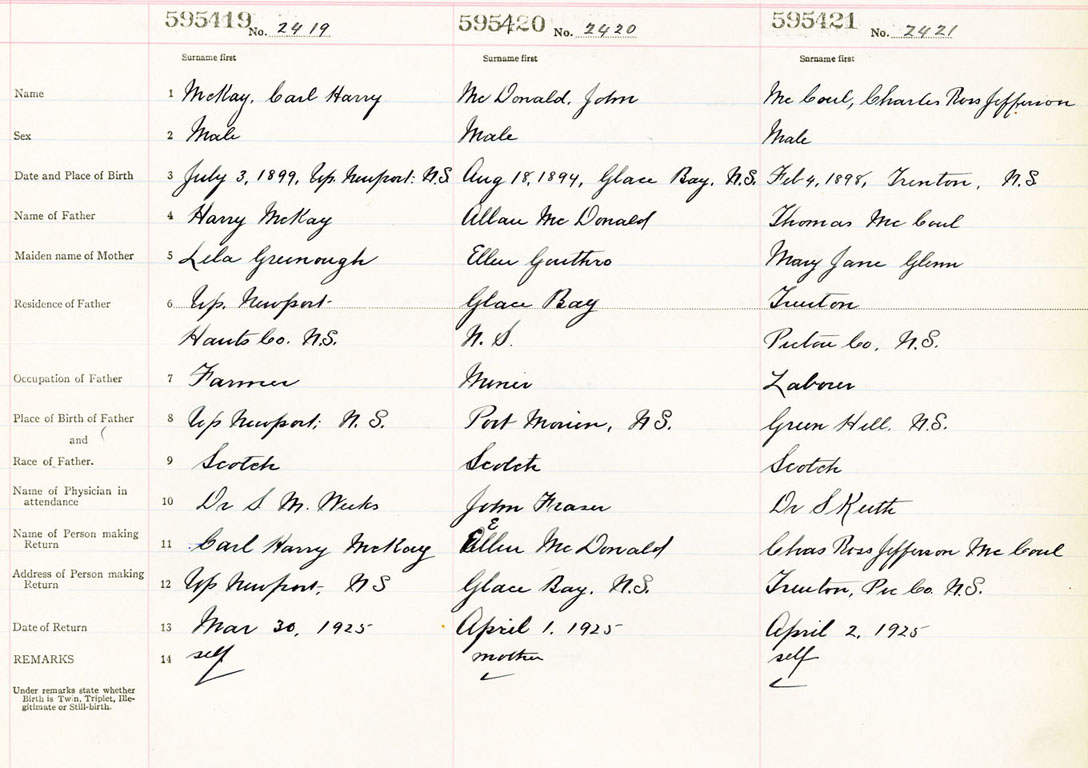 595419 No. 2419 595420 No. 2420 595421 No. 2421
Surname first Surname first Surname first
Name 1 McKay, Carl Harry Mc Donald, John Mc Coul, Charles Ross Jefferson
Sex 2 Male Male Male
Date and Place of Birth 3 July 3, 1899, Up. Newport. N.S Aug 18, 1894, Glace Bay, N.S. Feb 4, 1898, Trenton, N.S
Name of Father 4 Harry McKay Allan Mc Donald Thomas Mc Coul
Maiden name of Mother 5 Lela Greenough Ellen Gouthro Mary Jane Glenn
Residence of Father 6 Up. Newport Glace Bay Trenton
Hants Co. N.S. N.S. Pictou Co, N.S.
Occupation of Father 7 Farmer Miner Laborer
Place of Birth of Father 8 Up Newport. N.S. Port Morien, N.S. Green Hill. N.S.
and
Race of Father. 9 Scotch Scotch Scotch
Name of Physician in attendance 10 Dr S M. Weeks John Fraser Dr S Keith
Name of Person making Return 11 Carl Harry McKay Ellen Mc Donald Chas Ross Jefferson Mc Coul
Address of Person making Return 12 Up Newport, N S Glace Bay, N.S. Trenton, Pic Co. N.S.
Date of Return 13 Mar 30, 1925 April 1. 1925 April 2, 1925
REMARKS 14 self mother self
Under remarks state whether
Birth is Twin, Triplet, Ille-
gitimate or Still-birth.